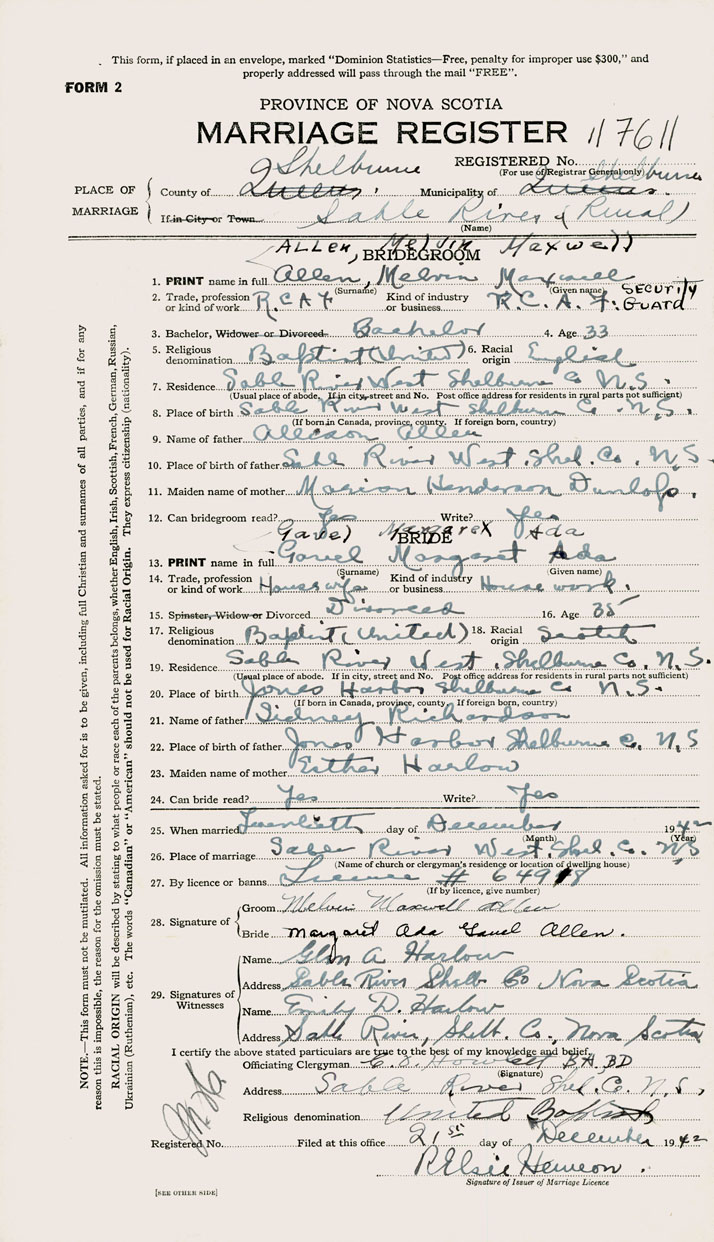 This form, if placed in an envelope, marked "Dominion Statistics—Free, penalty for improper use $300," and
properly addressed will pass through the mail "FREE".
FORM 2
PROVINCE OF NOVA SCOTIA
MARRIAGE REGISTER 117611
REGISTERED No.
(For use of Registrar General only)
PLACE OF MARRIAGE
Shelburne Shelburne
County of Queens. Municipality of Queens.
If in City or Town Sable River (Rural)
(Name)
ALLEN, Melvin Maxwell
BRIDEGROOM
1. PRINT name in full Allen, Melvin Maxwell
(Surname) (Given name)
2. Trade, profession or kind of work R.C.A.F. Kind of industry or business R.C.A.F. SECURITY GUARD
3. Bachelor, Widower or Divorced Bachelor 4. Age 33
5. Religious denomination Baptist (United) 6. Racial origin English
7. Residence Sable River West Shelburne Co N.S.
(Usual place of abode. If in city, street and No. Post office address for residents in rural parts not sufficient)
8. Place of birth Sable River West Shelburne Co. N.S.
(If born in Canada, province, county. If foreign born, country)
9. Name of father Allison Allen
10. Place of birth of father Sable River West. Shel. Co. N.S.
11. Maiden name of mother Marion Henderson Dunlop.
12. Can bridegroom read? Yes Write? Yes
Gavel Margaret Ada
BRIDE
13. PRINT name in full Gavel Margaret Ada
(Surname) (Given name)
14. Trade, profession or kind of work Housewife Kind of industry or business House work.
15. Spinster, Widow or Divorced Divorced 16. Age 35
17. Religious denomination Baptist (United) 18. Racial origin Scotch
19. Residence Sable River West. Shelburne Co. N.S.
(Usual place of abode. If in city, street and No. Post office address for residents in rural parts not sufficient)
20. Place of birth Jones Harbor Shelburne Co N.S.
(If born in Canada, province, county. If foreign born, country)
21. Name of father Sidney Richardson
22. Place of birth of father Jones Harbor Shelburne Co. N.S
23. Maiden name of mother Esther Harlow
24. Can bride read? Yes Write? Yes
25. When married Twentieth day of December 1942
(Month) (Year)
26. Place of marriage Sable River West. Shel. Co. N.S
(Name of church or clergyman's residence or location of dwelling house)
27. By licence or banns Licence # 64918
(If by licence, give number)
28. Signature of
Groom Melvin Maxwell Allen
Bride Margaret Ada Gavel Allen.
29. Signatures of Witnesses
Name Glen A Harlow
Address Sable River Shelb Co Nova Scotia
Name Emily D. Harlow
Address Sable River, Shelb. Co., Nova Scotia
I certify the above stated particulars are true to the best of my knowledge and belief.
Officiating Clergyman BA BD
(Signature)
Address Sable River Shel. Co. N.S.,
Religious denomination United Baptist
Registered No. Filed at this office 21st day of December 1942
R Elsie Hemeon.
Signature of Issuer of Marriage Licence
[SEE OTHER SIDE]
NOTE.—This form must not be mutilated. All information asked for is to be given, including full Christian and surnames of all parties, and if for any
reason this is impossible, the reason for the omission must be stated.
RACIAL ORIGIN will be described by stating to what people or race each of the parents belongs, whether English, Irish, Scottish, French, German, Russian,
Ukrainian (Ruthenian), etc. The words "Canadian" or "American" should not be used for Racial Origin. They express citizenship (nationality).